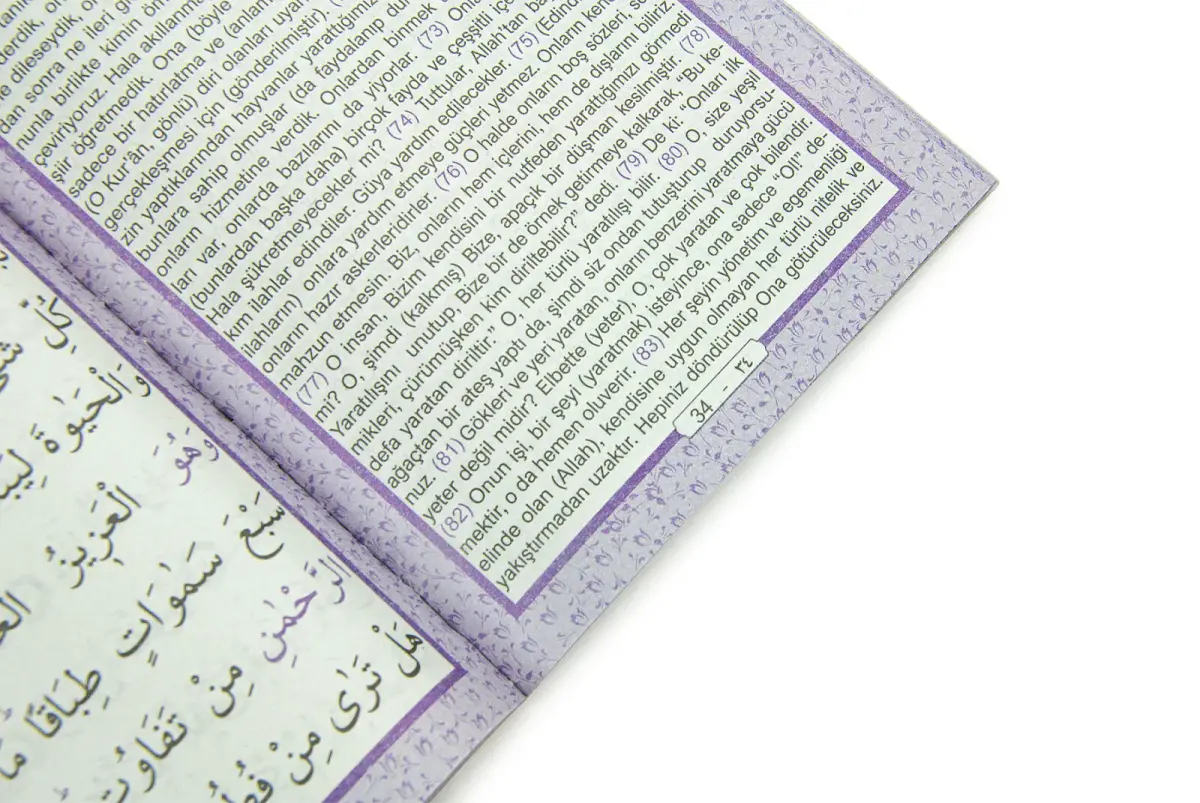 dileseydik,
sonra ne ileri
nunla birlikte kiminin
çeviriyoruz. Hala akılların
şiir öğretmedik. Ona (böyle
sadece bir hatırlatma ve (anlan
(O Kur'ân, gönlü) diri olanları uyar
gerçekleşmesi için (gönderilmiştir).
zin yaptıklarından hayvanlar yarattığımız
bunlara sahip olmuşlar (da faydalanıp
onların hizmetine verdik. Onlardan binmek
arı var, onlarda bazılarının, da yiyorlar. (73) Onla
(bunlardan başka daha) birçok fayda ve çeşitli içe
Hala şükretmeyecekler mi? (74) Tuttular, Allah'tan ba
kım ilahlar edindiler. Güya yardım edilecekler. (75) (Edind
ilahların) onlara yardım etmeye güçleri yetmez. Onların kend
onların hazır askerleridirler. (76) O halde onların boş sözleri, se
mahzun etmesin. Biz, onların hem içlerini, hem de dışlarını biliriz.
(77) O insan, Bizim kendisini bir nutfeden yarattığımızı görmedi
mi? O, şimdi (kalkmış) Bize, apaçık bir düşman kesilmiştir. (78)
Yaratılışını unutup, Bize bir de örnek getirmeye kalkarak, "Bu ke-
mikleri, çürümüşken kim diriltebilir?" dedi. (79) De ki: "Onları ilk
defa yaratan diriltir." O, her türlü yaratılışı bilir. (80) O, size yeşil
ağaçtan bir ateş yaptı da, şimdi siz ondan tutuşturup duruyorsu-
nuz. (81) Gökleri ve yeri yaratan, onların benzerini yaratmaya gücü
yeter değil midir? Elbette (yeter), O, çok yaratan ve çok bilendir.
(82) Onun işi, bir şeyi (yaratmak) isteyince, ona sadece "Ol!" de-
mektir, o da hemen oluverir. (83) Her şeyin yönetim ve egemenliği
elinde olan (Allah), kendisine uygun olmayan her türlü nitelik ve
yakıştırmadan uzaktır. Hepiniz döndürülüp Ona götürüleceksiniz.
34 - ٣٤
كُلِّ
وَالْحَيٰوةَ
وَهُوَ الْعَزِيزُ
سَبْعَ سَمٰوَاتٍ طِبَاقًا
الرَّحْمٰنِ مِنْ تَفَاوُتٍ
هَلْ تَرٰى مِنْ